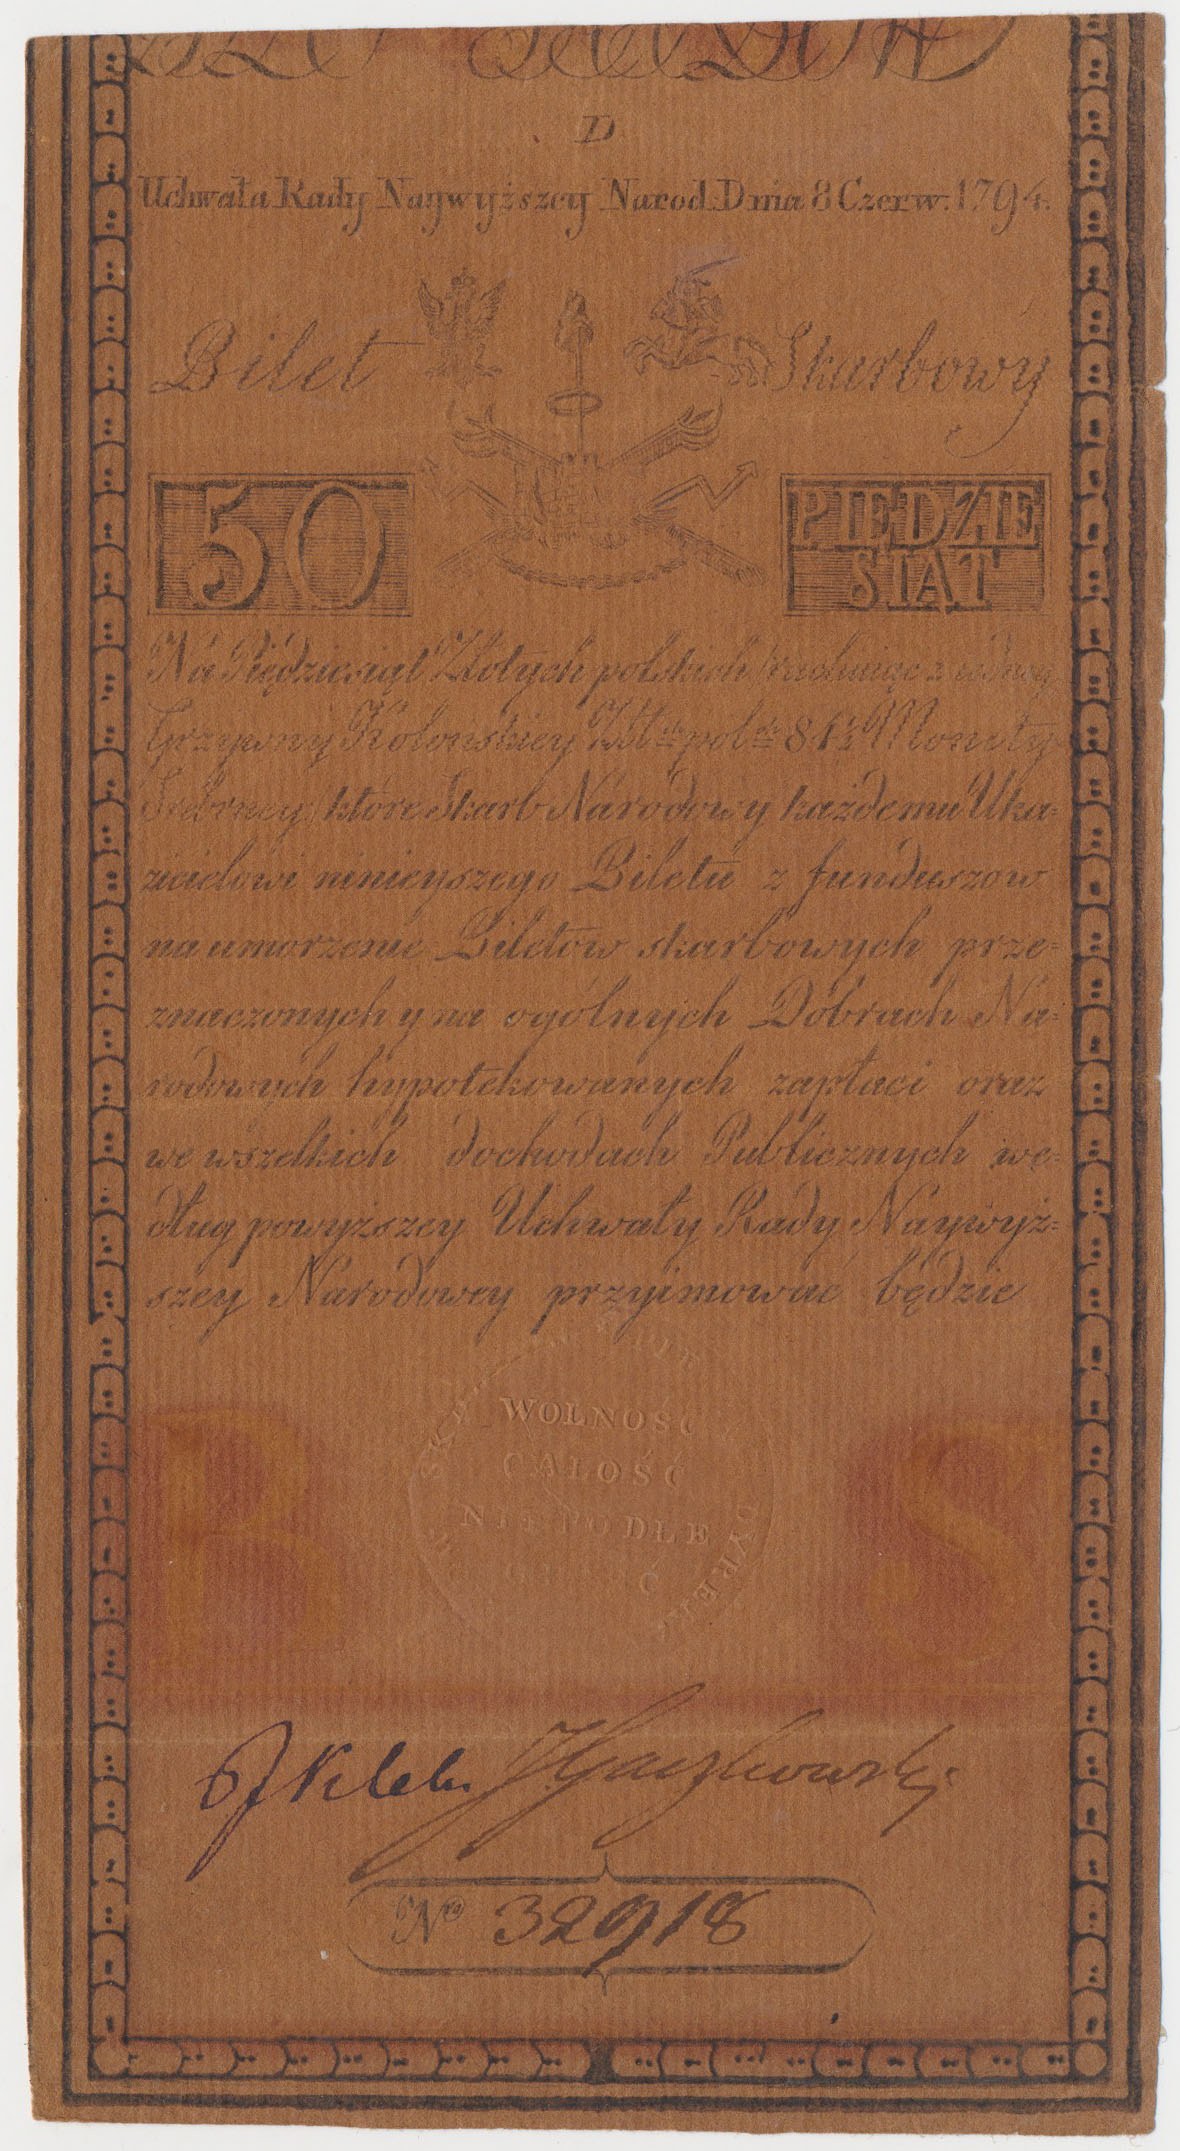 D
Uchwała Rady Naywyższey Narod. Dnia 8 Czerw. 1794.
Bilet Skarbowy
50 PIĘDZIE
SIĄT
Na Piędziesiąt Złotych polskich rachuiąc z iedney
Grzywny Kolońskiey Zł: pol: 84½ Monety
Srebrney które Skarb Narodowy każdemu Uka=
zicielowi ninieyszego Biletu z funduszow
na umorzenie Biletów skarbowych prze=
znaczonych y na ogólnych Dobrach Na=
rodowych hypotekowanych zapłaci oraz
we wszelkich dochodach Publicznych we=
dług powyższey Uchwały Rady Naywyż=
szey Narodowey przyimować będzie
WOLNOŚĆ
CAŁOŚĆ
NIEPODLE
B S
No 32918